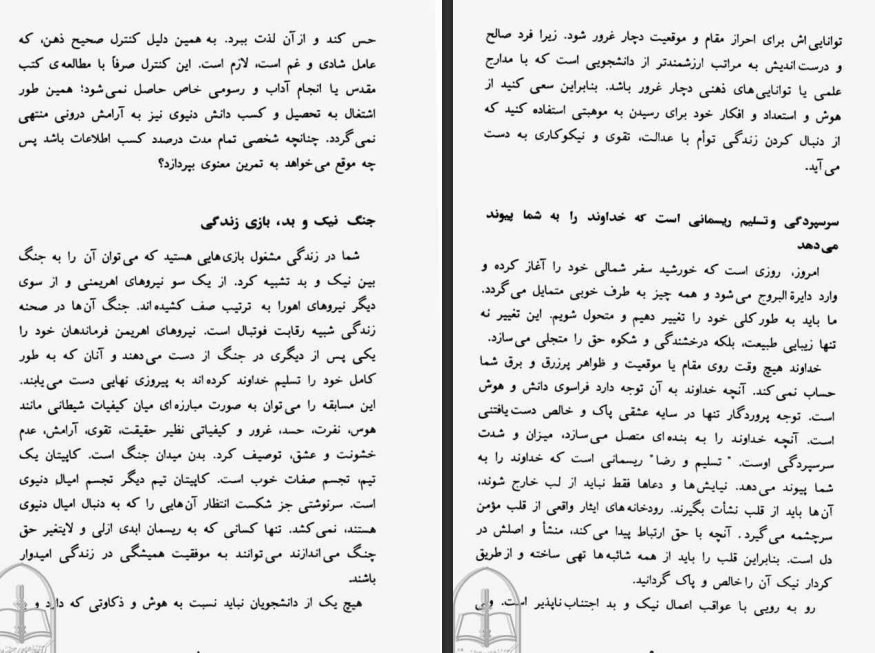 حس کند و از آن لذت ببرد. به همین دلیل کنترل صحیح ذهن، که
عامل شادی و غم است، لازم است. این کنترل صرفاً با مطالعه‌ی کتب
مقدس یا انجام آداب و رسومی خاص حاصل نمی‌شود؛ همین طور
اشتغال به تحصیل و کسب دانش دنیوی نیز به آرامش درونی منتهی
نمی‌گردد. چنانچه شخصی تمام مدت درصدد کسب اطلاعات باشد پس
چه موقع می‌خواهد به تمرین معنوی بپردازد؟
جنگ نیک و بد، بازی زندگی
شما در زندگی مشغول بازی‌هایی هستید که می‌توان آن را به جنگ
بین نیک و بد تشبیه کرد. از یک سو نیروهای اهریمنی و از سوی
دیگر نیروهای اهورا به ترتیب صف کشیده‌اند. جنگ آن‌ها در صحنه
زندگی شبیه رقابت فوتبال است. نیروهای اهریمن فرماندهان خود را
یکی پس از دیگری در جنگ از دست می‌دهند و آنان که به طور
کامل خود را تسلیم خداوند کرده‌اند به پیروزی نهایی دست می‌یابند.
این مسابقه را می‌توان به صورت مبارزه‌ای میان کیفیات شیطانی مانند
هوس، نفرت، حسد، غرور و کیفیاتی نظیر حقیقت، تقوی، آرامش، عدم
خشونت و عشق، توصیف کرد. بدن میدان جنگ است. کاپیتان یک
تیم، تجسم صفات خوب است. کاپیتان تیم دیگر تجسم امیال دنیوی
است. سرنوشتی جز شکست انتظار آن‌هایی را که به دنبال امیال دنیوی
هستند، نمی‌کشد. تنها کسانی که به ریسمان ابدی ازلی و لایتغیر حق
چنگ می‌اندازند می‌توانند به موفقیت همیشگی در زندگی امیدوار
باشند.
هیچ یک از دانشجویان نباید نسبت به هوش و ذکاوتی که دارد و
توانایی‌اش برای احراز مقام و موقعیت دچار غرور شود. زیرا فرد صالح
و درست‌اندیش به مراتب ارزشمندتر از دانشجویی است که با مدارج
علمی یا توانایی‌های ذهنی دچار غرور باشد. بنابراین سعی کنید از
هوش و استعداد و افکار خود برای رسیدن به موهبتی استفاده کنید که
از دنبال کردن زندگی توأم با عدالت، تقوی و نیکوکاری به دست
می‌آید.
سرسپردگی و تسلیم ریسمانی است که خداوند را به شما پیوند
می‌دهد
امروز، روزی است که خورشید سفر شمالی خود را آغاز کرده و
وارد دایرة البروج می‌شود و همه چیز به طرف خوبی متمایل می‌گردد.
ما باید به طور کلی خود را تغییر دهیم و متحول شویم. این تغییر نه
تنها زیبایی طبیعت، بلکه درخشندگی و شکوه حق را متجلی می‌سازد.
خداوند هیچ وقت روی مقام یا موقعیت و ظواهر پرزرق و برق شما
حساب نمی‌کند. آنچه خداوند به آن توجه دارد فراسوی دانش و هوش
است. توجه پروردگار تنها در سایه عشقی پاک و خالص دست‌یافتنی
است. آنچه خداوند را به بنده‌ای متصل می‌سازد، میزان و شدت
سرسپردگی اوست. " تسلیم و رضا" ریسمانی است که خداوند را به
شما پیوند می‌دهد. نیایش‌ها و دعاها فقط نباید از لب خارج شوند،
آن‌ها باید از قلب نشأت بگیرند. رودخانه‌های ایثار واقعی از قلب مؤمن
سرچشمه می‌گیرد. آنچه با حق ارتباط پیدا می‌کند، منشأ و اصلش در
دل است. بنابراین قلب را باید از همه شائبه‌ها تهی ساخته و از طریق
کردار نیک آن را خالص و پاک گردانید.
رو به رویی با عواقب اعمال نیک و بد اجتناب‌ناپذیر است. ولی